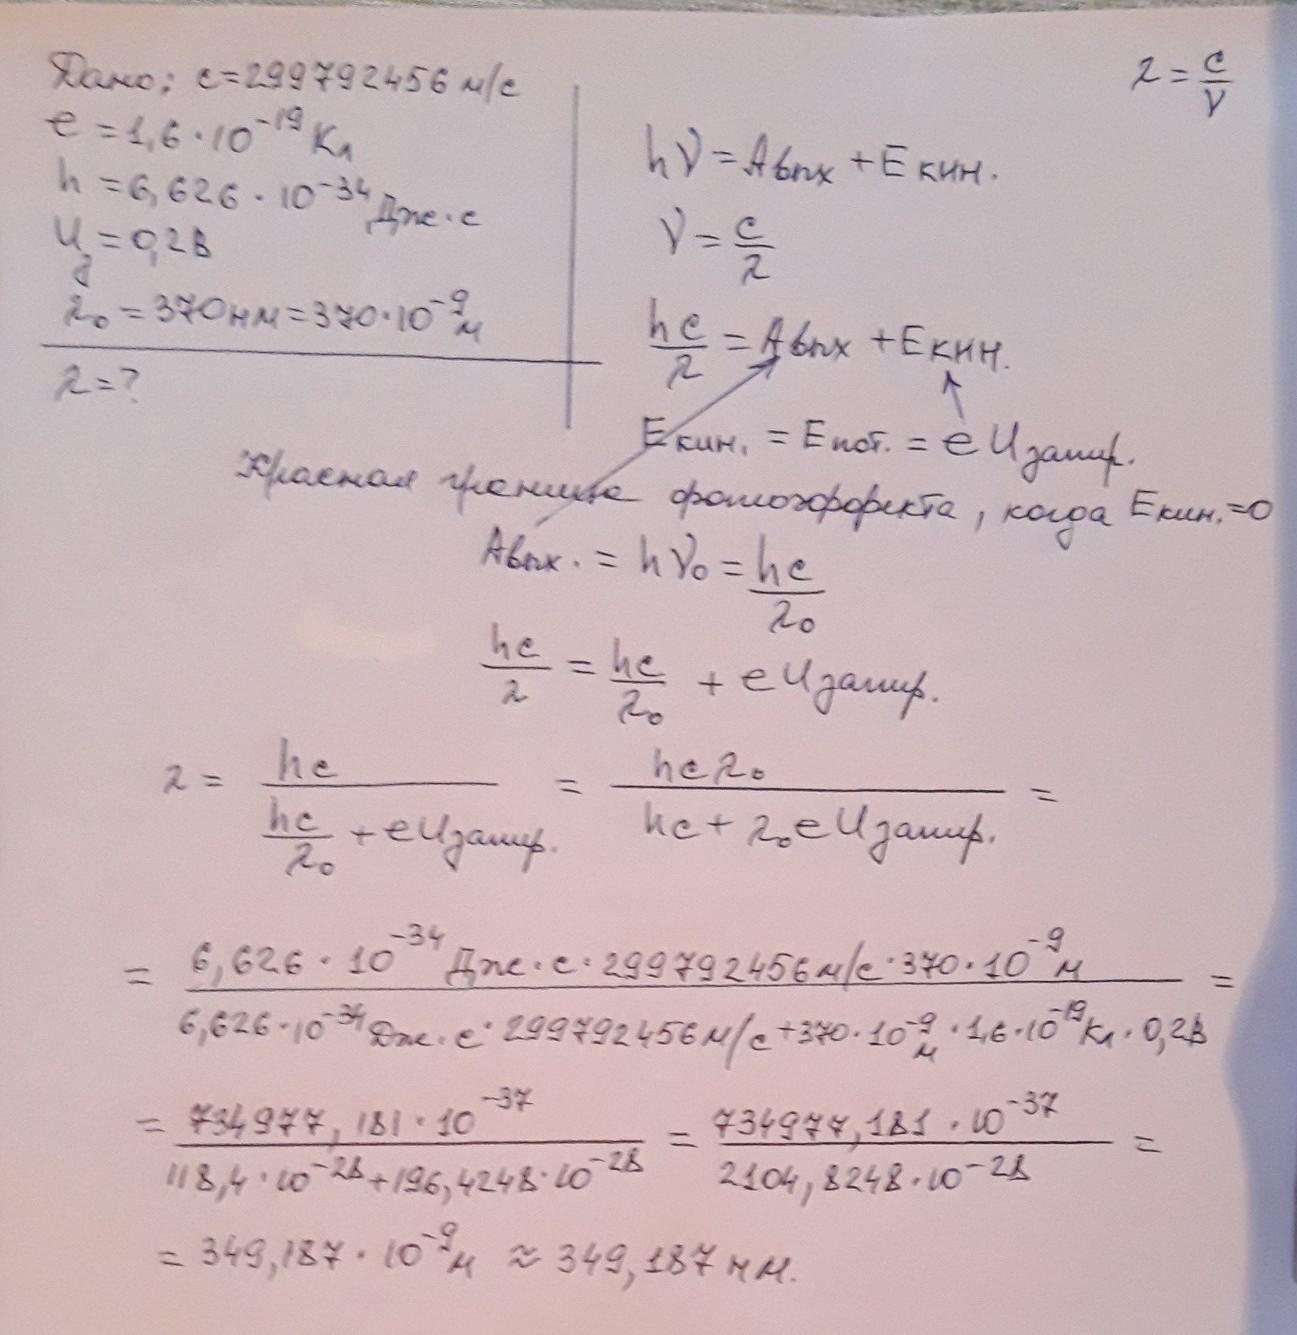 Дано: c=299792456 м/с
e = 1,6·10⁻¹⁹ Кл
h = 6,626·10⁻³⁴ Дж·с
U_з = 0,2В
λ₀ = 370нм = 370·10⁻⁹ м
λ = ?
λ = c/ν
hν = Aвых + Eкин.
ν = c/λ
hc/λ = Aвых + Eкин.
Eкин. = Eпот. = eUзапир.
Красная граница фотоэффекта, когда Eкин.=0
Aвых. = hν₀ = hc/λ₀
hc/λ = hc/λ₀ + eUзапир.
λ = hc/(hc/λ₀ + eUзапир.) = hcλ₀/(hc + λ₀eUзапир.) =
= 6,626·10⁻³⁴ Дж·с·299792456м/с·370·10⁻⁹м / 6,626·10⁻³⁴Дж·с·299792456м/с+370·10⁻⁹м·1,6·10⁻¹⁹Кл·0,2В =
= 734977,181·10⁻³⁷ / 118,4·10⁻²⁸+196,4248·10⁻²⁸ = 734977,181·10⁻³⁷ / 2104,8248·10⁻²⁸ =
= 349,187·10⁻⁹м ≈ 349,187 нм.